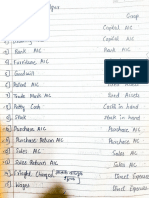 Group
Capital A/C
Capital A/C
3) Bank A/C Bank A/C
4) Furniture A/C
5) Goodwill
6) Patent A/C Fixed Assets
7) Trade Mark A/C Fixed Assets
8) Petty Cash Cash in hand
9) Stock Stock in hand
10) Purchase A/C Purchase A/C
11) Purchase Return A/C Purchase A/C
12) Sales A/C Sales A/C
13) Sales Return A/C Sales A/C
Freight Charged Direct Expenses
15) Wages Direct Expenses